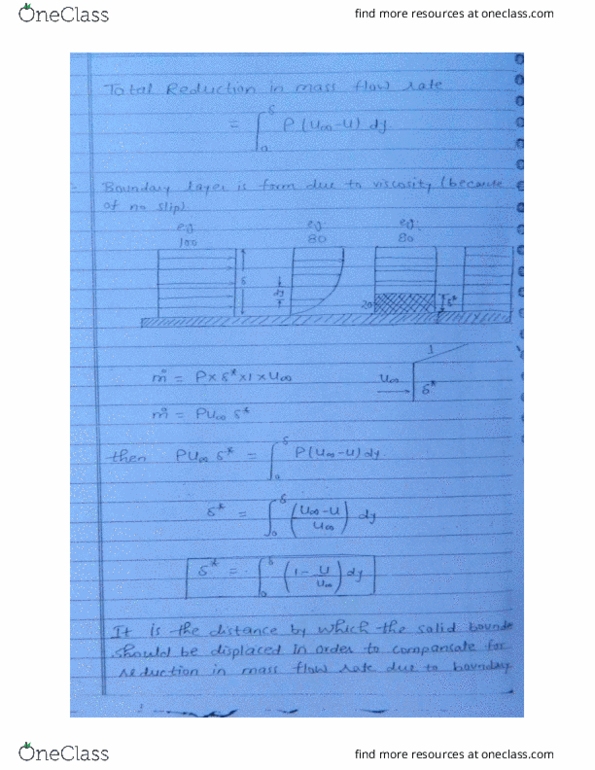 OneClass
find more resources at oneclass.com
Total Reduction in mass flow rate
= ∫₀^δ ρ (u∞-u) dy
Boundary layer is form due to viscosity (because
of no slip)
eg eg eg
100 80 80
δ dy 20 δ*
1
ṁ = ρ x δ* x 1 x u∞
u∞ δ*
ṁ = ρu∞ δ*
then ρu∞ δ* = ∫₀^δ ρ(u∞-u) dy
δ* = ∫₀^δ (u∞-u / u∞) dy
δ* = ∫₀^δ (1 - u/u∞) dy
It is the distance by which the solid bounda
should be displaced in order to compansate for
reduction in mass flow rate due to boundary
OneClass
find more resources at oneclass.com